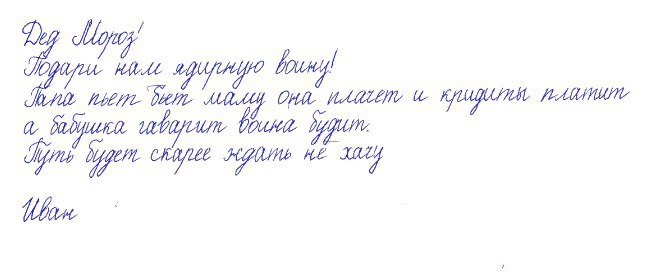 Дед Мороз!
Подари нам ядирную воину!
Папа пьет бьет маму она плачет и кридиты платит
а бабушка гаварит воина будит.
Путь будет скарее ждать не хачу
Иван